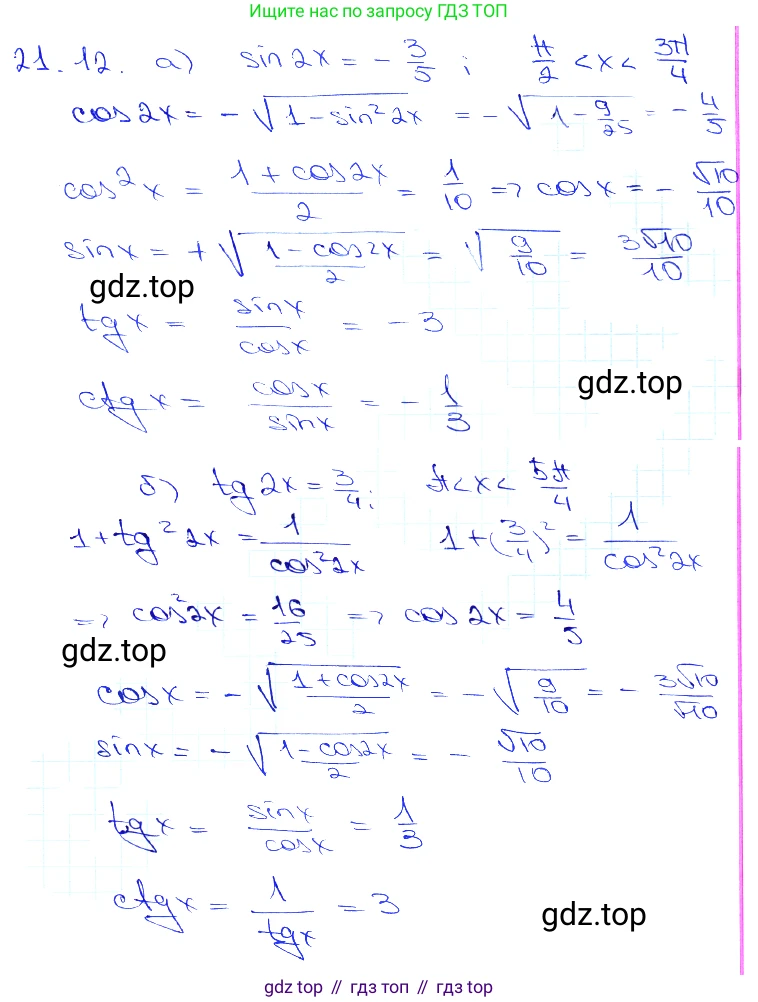 Ищите нас по запросу ГДЗ ТОП
21.12. а) sin2x = - 3/5 ; π/2 < x < 3π/4
cos2x = - √(1 - sin²2x) = - √(1 - 9/25) = - 4/5
cos²x = (1 + cos2x)/2 = 1/10 => cosx = - √10/10
sinx = + √((1 - cos2x)/2) = √(9/10) = 3√10/10
gdz.top
tgx = sinx/cosx = - 3
gdz.top
ctgx = cosx/sinx = - 1/3
б) tg2x = 3/4; π < x < 5π/4
1 + tg²2x = 1/cos²2x 1 + (3/4)² = 1/cos²2x
=> cos²2x = 16/25 => cos2x = 4/5
gdz.top
cosx = - √((1 + cos2x)/2) = - √(9/10) = - 3√10/√10
sinx = - √((1 - cos2x)/2) = - √10/10
tgx = sinx/cosx = 1/3
ctgx = 1/tgx = 3
gdz.top
gdz top // гдз топ // gdz top